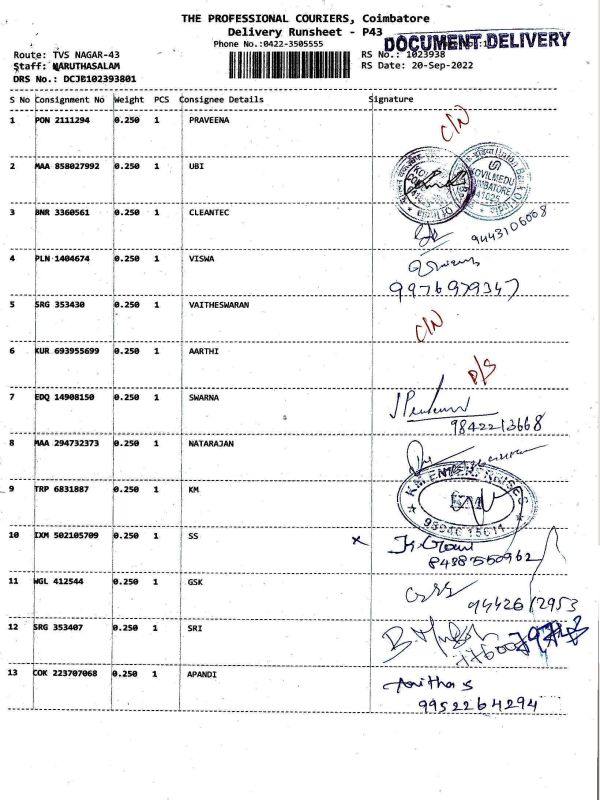 THE PROFESSIONAL COURIERS, Coimbatore
Delivery Runsheet - P43
Phone No.:0422-3505555
DOCUMENT DELIVERY
Route: TVS NAGAR-43
RS No.: 1023938
Staff: MARUTHASALAM
RS Date: 20-Sep-2022
DRS No.: DCJB102393801
S No Consignment No Weight PCS Consignee Details Signature
1 PON 2111294 0.250 1 PRAVEENA C/N
2 MAA 858027992 0.250 1 UBI
KOVILMEDU
COIMBATORE
641025
3 BNR 3360561 0.250 1 CLEANTEC 9443106068
4 PLN 1404674 0.250 1 VISWA
9976979347
5 SRG 353430 0.250 1 VAITHESWARAN C/N
6 KUR 693955699 0.250 1 AARTHI D/S
7 EDQ 14908150 0.250 1 SWARNA
9842213668
8 MAA 294732373 0.250 1 NATARAJAN
9 TRP 6831887 0.250 1 KM
KM ENTERPRISES
10 IXM 502105709 0.250 1 SS x
8438550962
11 WGL 412544 0.250 1 GSK
9442612953
12 SRG 353407 0.250 1 SRI
13 COK 223707068 0.250 1 APANDI Anitha s
9952264294